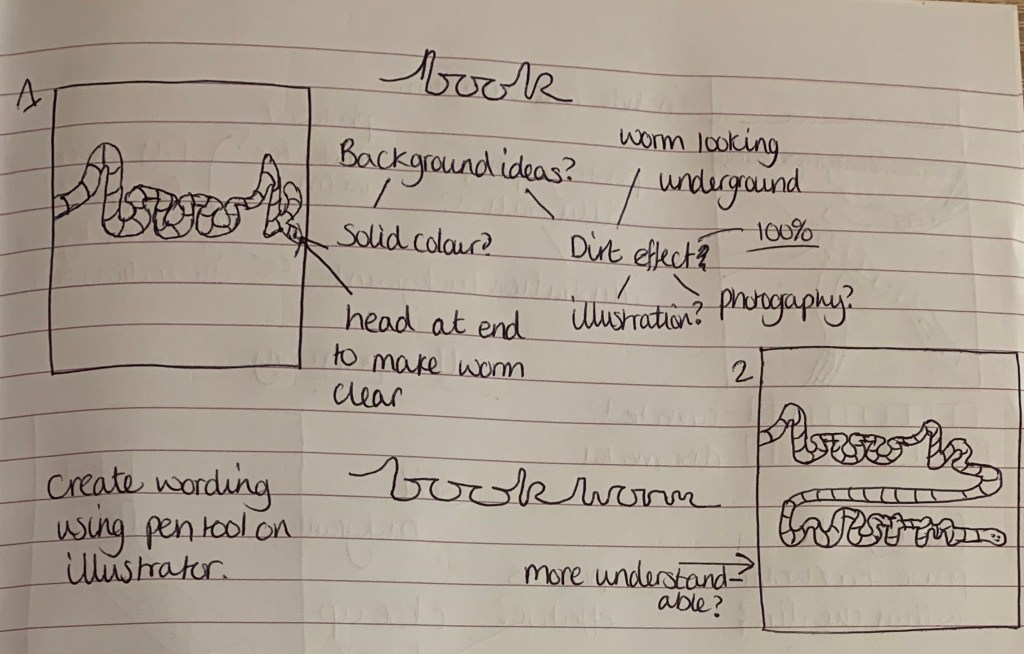 book
1
Background ideas?
worm looking
underground
Solid colour?
Dirt effect?
100%
illustration?
photography?
head at end
to make worm
clear
2
create wording
using pen tool on
illustrator.
bookworm
more understand-
able?
book
bookworm